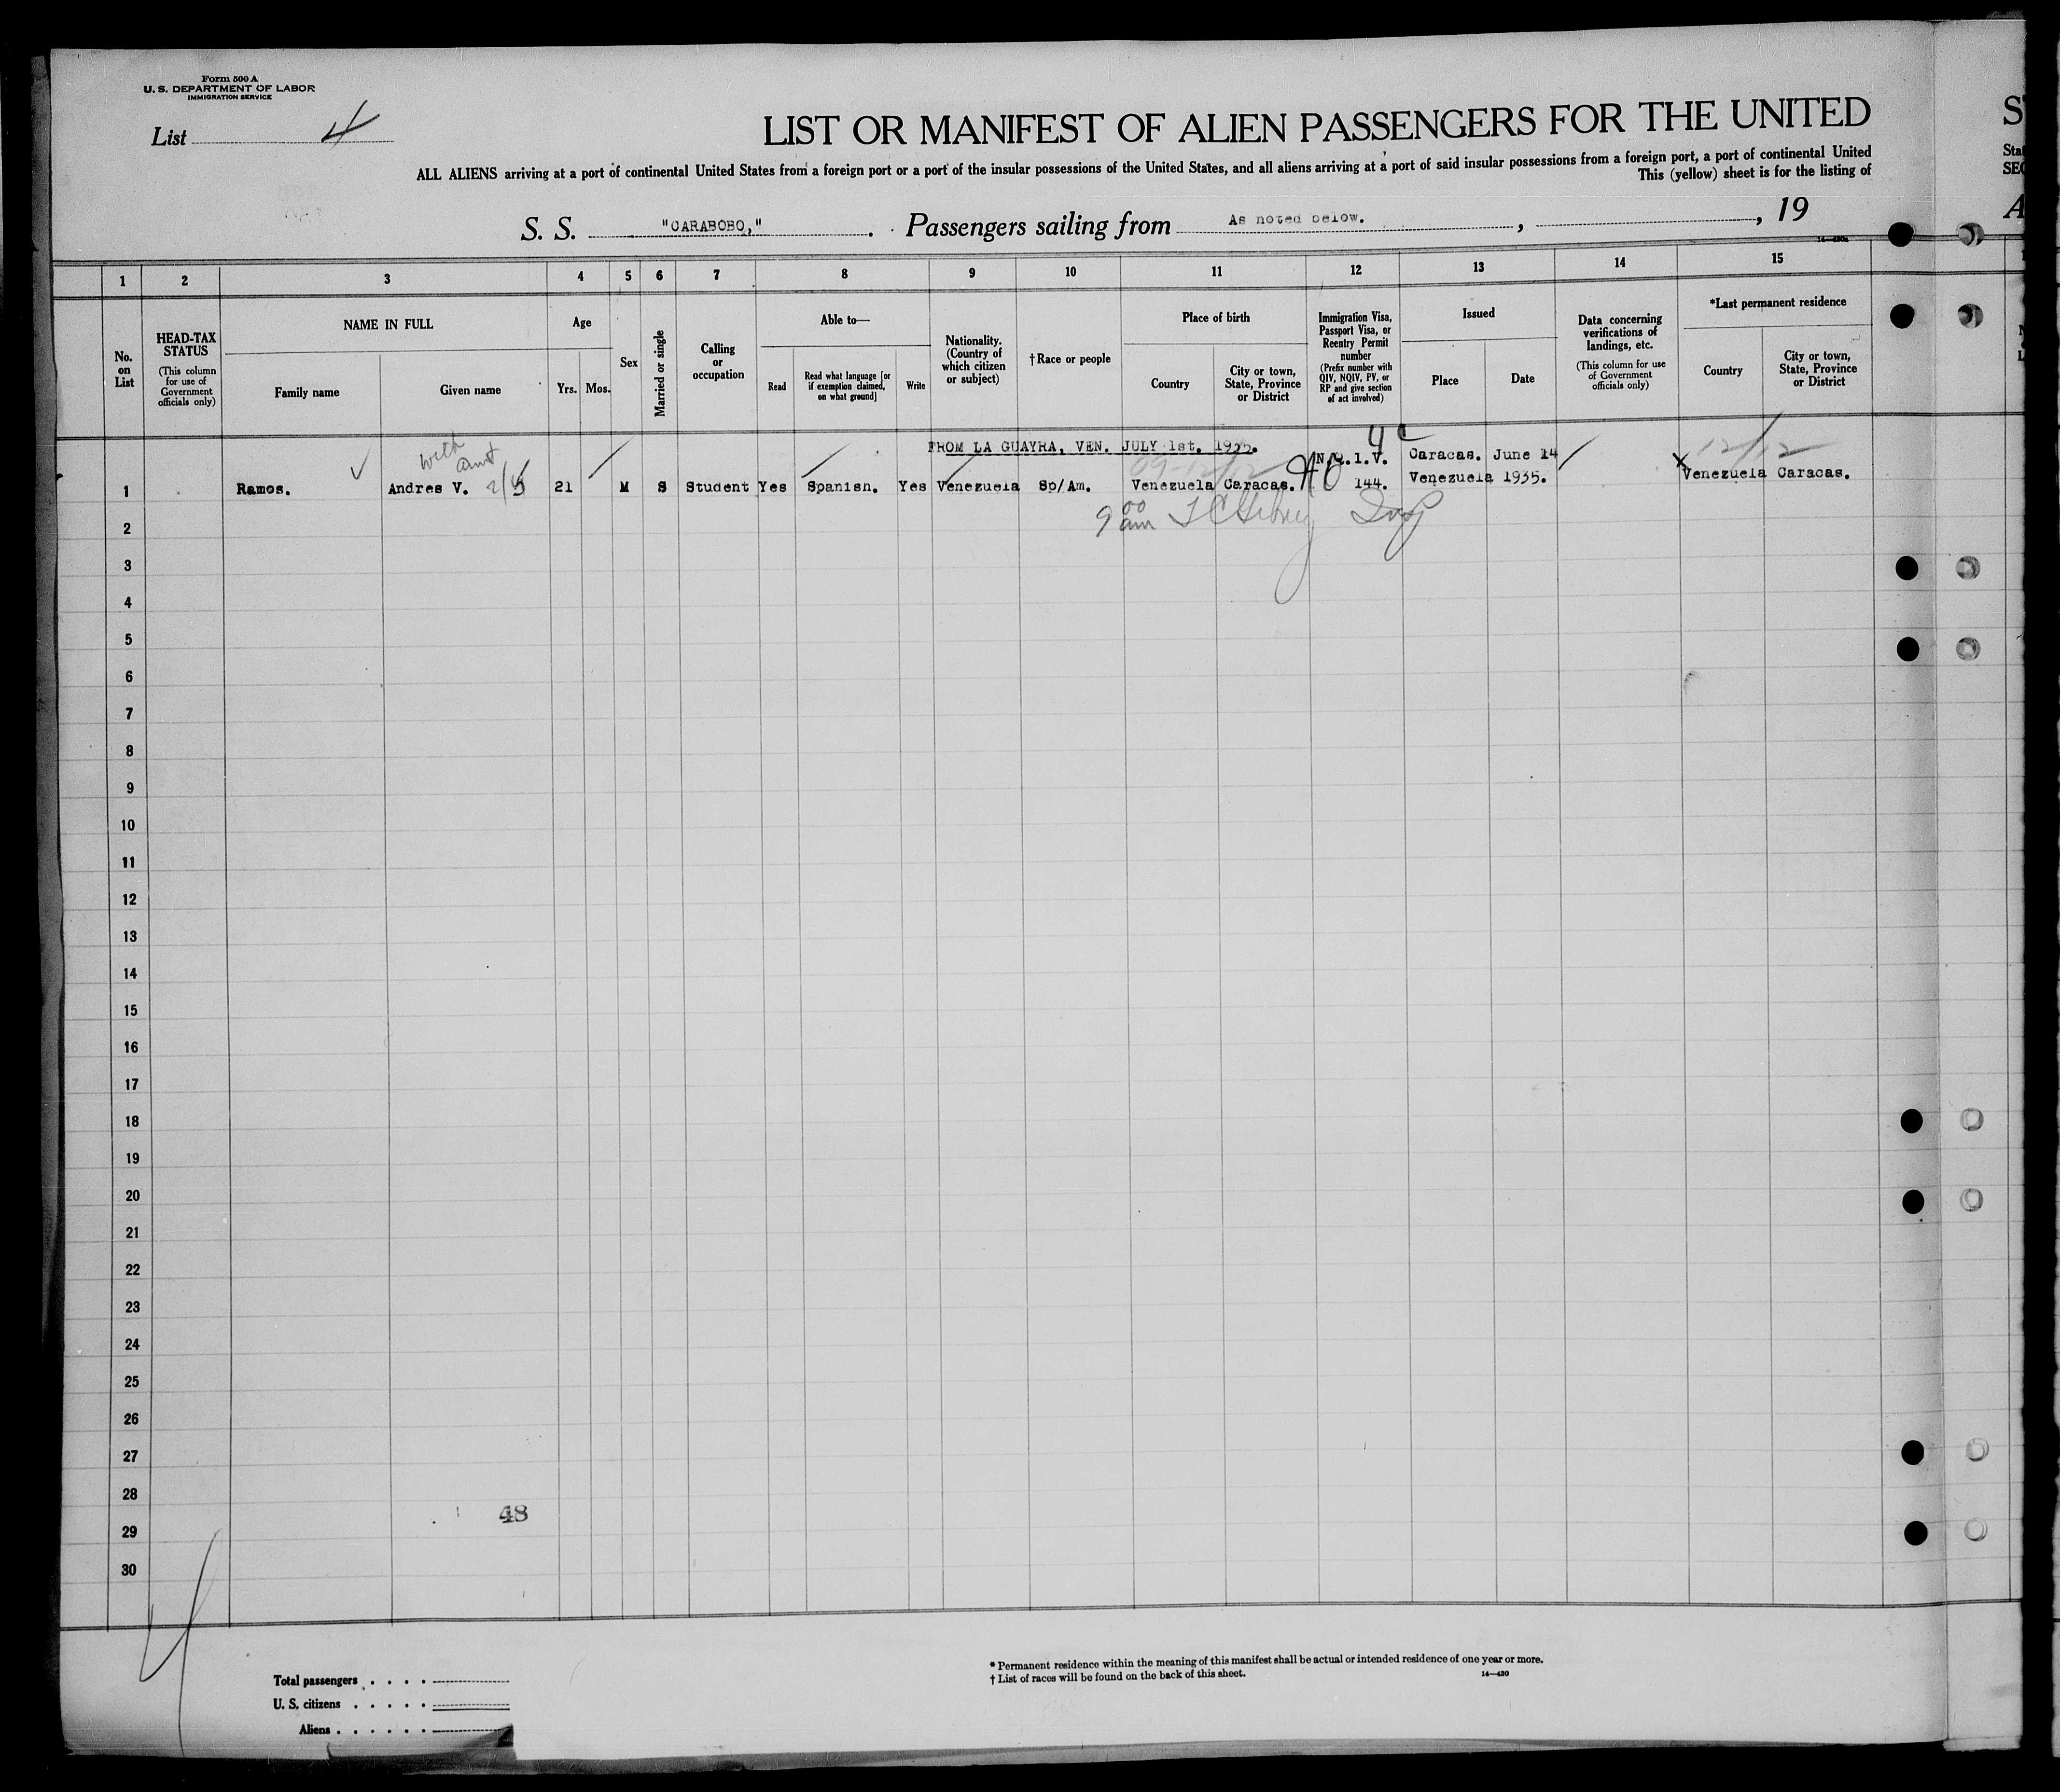 Form 500 A
U. S. DEPARTMENT OF LABOR
IMMIGRATION SERVICE
List 4
LIST OR MANIFEST OF ALIEN PASSENGERS FOR THE UNITED
ALL ALIENS arriving at a port of continental United States from a foreign port or a port of the insular possessions of the United States, and all aliens arriving at a port of said insular possessions from a foreign port, a port of continental United
This (yellow) sheet is for the listing of
S. S. "CARABOBO," . Passengers sailing from As noted below. , , 19
1 2 3 4 5 6 7 8 9 10 11 12 13 14 15
No. on List
HEAD-TAX STATUS
(This column for use of Government officials only)
NAME IN FULL
Family name
Given name
Age
Yrs. Mos.
Sex
Married or single
Calling or occupation
Able to—
Read
Read what language [or if exemption claimed, on what ground]
Write
Nationality. (Country of which citizen or subject)
†Race or people
Place of birth
Country
City or town, State, Province or District
Immigration Visa, Passport Visa, or Reentry Permit number
(Prefix number with QIV, NQIV, PV, or RP and give section of act involved)
Issued
Place
Date
Data concerning verifications of landings, etc.
(This column for use of Government officials only)
*Last permanent residence
Country
City or town, State, Province or District
FROM LA GUAYRA, VEN. JULY 1st. 1935.
with aunt
1 Ramos. Andres V. 21 M S Student Yes Spanish. Yes Venezuela Sp/Am. Venezuela Caracas. 144. Caracas. Venezuela June 14 1935. Venezuela Caracas.
12/12
9 00 am
2
3
4
5
6
7
8
9
10
11
12
13
14
15
16
17
18
19
20
21
22
23
24
25
26
27
28
29
30
48
Total passengers
U. S. citizens
Aliens
* Permanent residence within the meaning of this manifest shall be actual or intended residence of one year or more.
† List of races will be found on the back of this sheet.
14—430